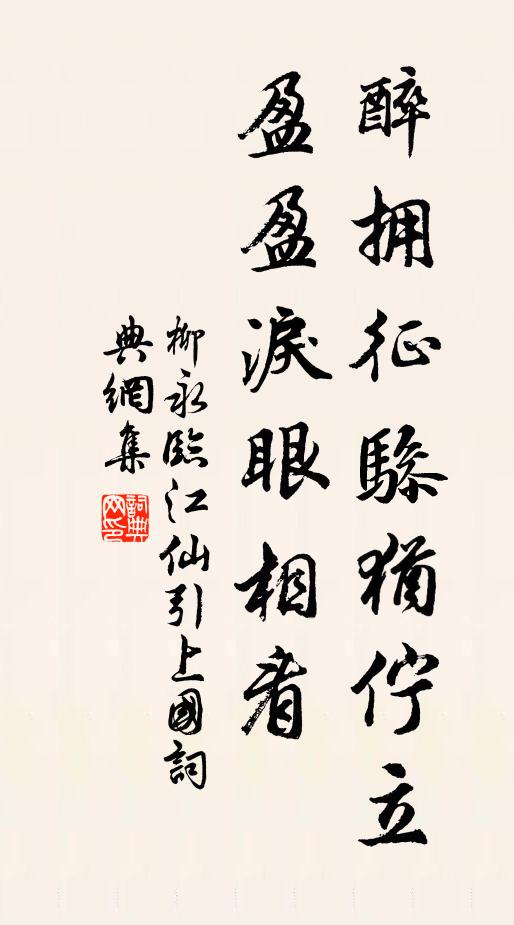 醉拥征驂猶佇立
盈盈淚眼相看
柳永臨江仙引上國詞
典網集
詞典
网印